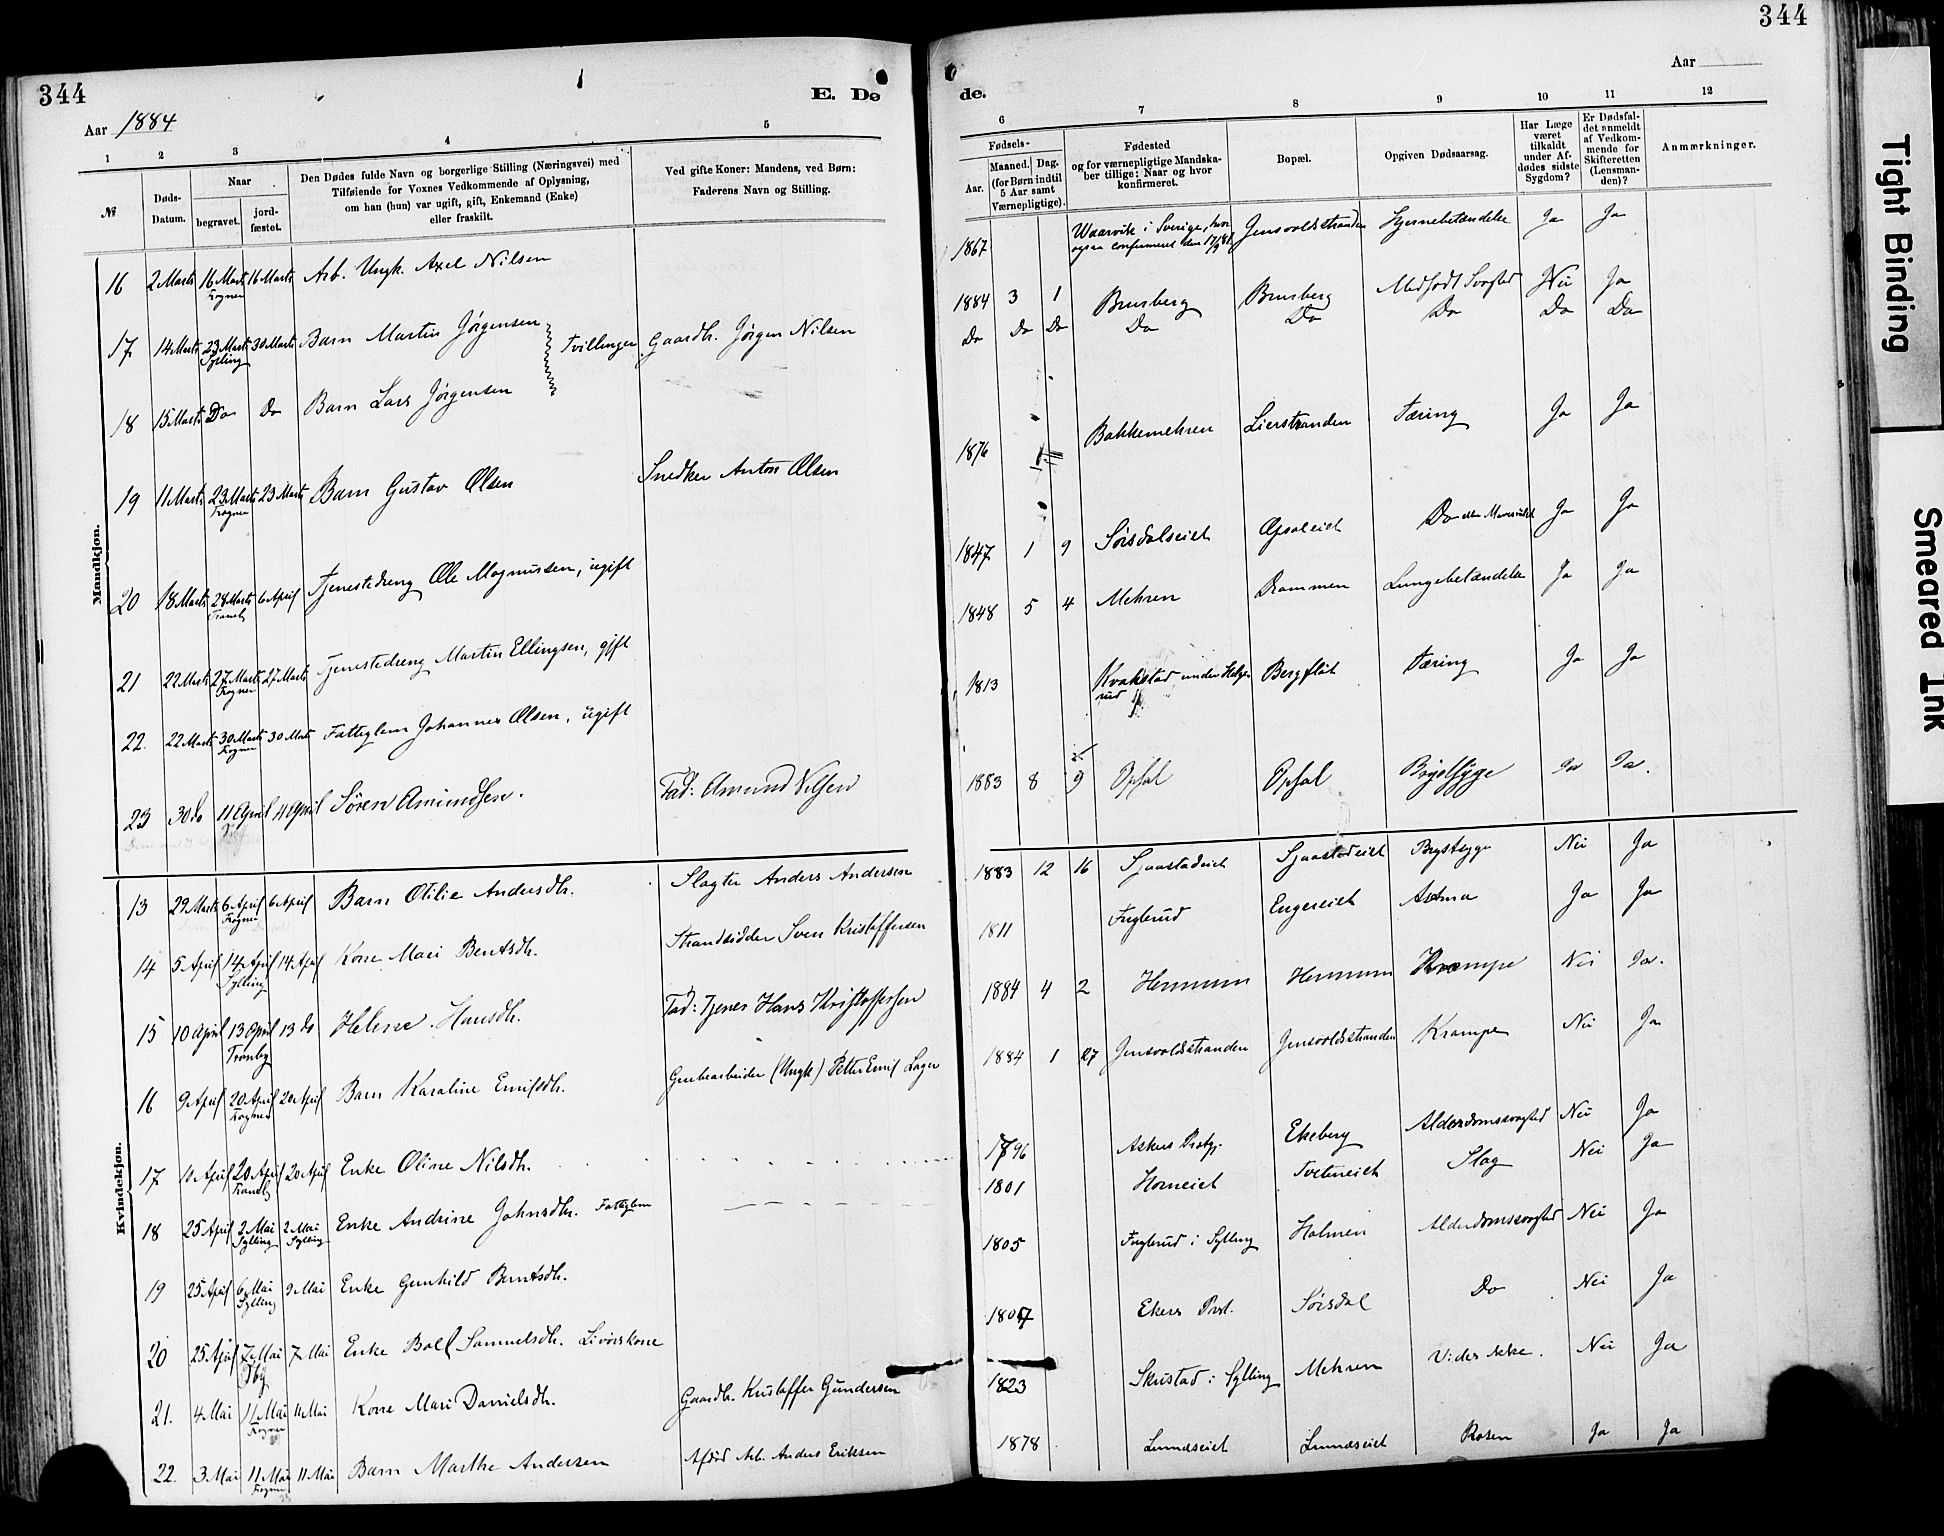 344
344
Aar 1884
E. Dø
de.
Aar
1 2 3 4 5
6 7 8 9 10 11 12
№
Døds-
Datum.
Naar
begravet.
jord-
fæstet.
Den Dødes fulde Navn og borgerlige Stilling (Næringsvei) med
Tilføiende for Voxnes Vedkommende af Oplysning,
om han (hun) var ugift, gift, Enkemand (Enke)
eller fraskilt.
Ved gifte Koner: Mandens, ved Børn:
Faderens Navn og Stilling.
Fødsels-
Aar.
Maaned. Dag.
(for Børn indtil
5 Aar samt
Værnepligtige).
Fødested
og for værnepligtige Mandska-
ber tillige: Naar og hvor
konfirmeret.
Bopæl.
Opgiven Dødsaarsag.
Har Læge
været
tilkaldt
under Af-
dødes sidste
Sygdom?
Er Dødsfal-
det anmeldt
af Vedkom-
mende for
Skifteretten
(Lensman-
den)?
Anmærkninger.
Mandkjøn.
16 2 Marts 16 Marts Frogner 16 Marts Arb. Ungk. Axel Nilsen
1867 Waarvik i Sverige, hvor ogsaa confirmeret den Gensvoldstranden Hjernebetændelse Ja Ja
17 14 Marts 23 Marts Sylling 30 Marts Barn Martin Jørgensen Tvillinger Gaardb. Jørgen Nilsen
1884 3 1 Brusberg Brusberg Medfødt Svaghed Nei Ja
18 15 Marts Do Do Barn Lars Jørgensen
Do Do Do Do Do Do Do Do
19 11 Marts 23 Marts Frogner 23 Marts Barn Gustav Olsen Snedker Anton Olsen
1876 Bakkemehren Lierstranden Tæring Ja Ja
20 18 Marts 28 Marts Tranby 6 April Tjenestedreng Ole Magnussen, ugift
1847 1 9 Sørsdalseiet Opsaleiet Do Ja Ja
21 22 Marts 27 Marts Frogner 27 Marts Tjenestedreng Martin Ellingsen, gift
1848 5 4 Mehren Drammen Lungebetændelse Ja Ja
22. 22 Marts 30 Marts Frogner 30 Marts Fattiglem Johannes Olsen, ugift
1813 Kvakstad under Helgerud Bergflot Tæring Ja Ja
23 30 do 11 April 11 April Søren Amundsen. Fad: Amund Nilsen
1883 8 9 Opsal Opsal Brystsyge Ja Ja.
Kvindekjøn.
13 29 Marts 6 April Frogner 6 April Barn Otilie Andersdtr. Slagter Anders Andersen
1883 12 16 Sjaastadeiet Sjaastadeiet Brystsyge Nei Ja
14 5 April 14 April Sylling 14 April Kone Mari Bentsdtr. Strandsidder Sven Kristoffersen
1811 Fuglerud Engereiet Astma Ja Ja
15 10 April 13 April Tranby 13 do Helene Hansdtr. Fad: Tjener Hans Kristoffersen
1884 4 2 Hennum Hennum Krampe Nei Ja.
16 9 April 20 April Frogner 20 April Barn Karoline Emilsdtr. Grubearbeider (Ungk) Petter Emil Lager
1884 1 27 Gensvoldstranden Gensvoldstranden Krampe Nei Ja
17 11 April 20 April Tranby 20 April Enke Oline Nilsdtr.
1796 Askers Prstgj. Ekeberg Alderdomssvaghed Nei Ja
18 25 April 2 Mai Sylling 2 Mai Sylling Enke Andrine Johnsdtr. Fattiglem
1801 Horneiet Tveteneiet Slag Nei Ja
19 25 April 6 Mai Sylling 9 Mai Enke Gunhild Berntsdtr.
1805 Fuglerud i Sylling Holmen Alderdomssvaghed Nei Ja
20 25 April 7 Mai 7 Mai Enke Boel Samuelsdtr. Livørskone
1807 Ekers Prst. Sørsdal Do Nei Ja
21. 4 Mai 11 Mai Frogner 11 Mai Kone Mari Danielsdtr. Gaardb. Kristoffer Gundersen
1823 Skustad i Sylling Mehren Vides ikke. Nei Ja
22. 3 Mai 11 Mai Frogner 11 Mai Barn Marthe Andersen Afdød Arb. Anders Eriksen
1878 Linnæseiet Linnæseiet Rosen Ja Ja
Tight Binding
Smeared Ink